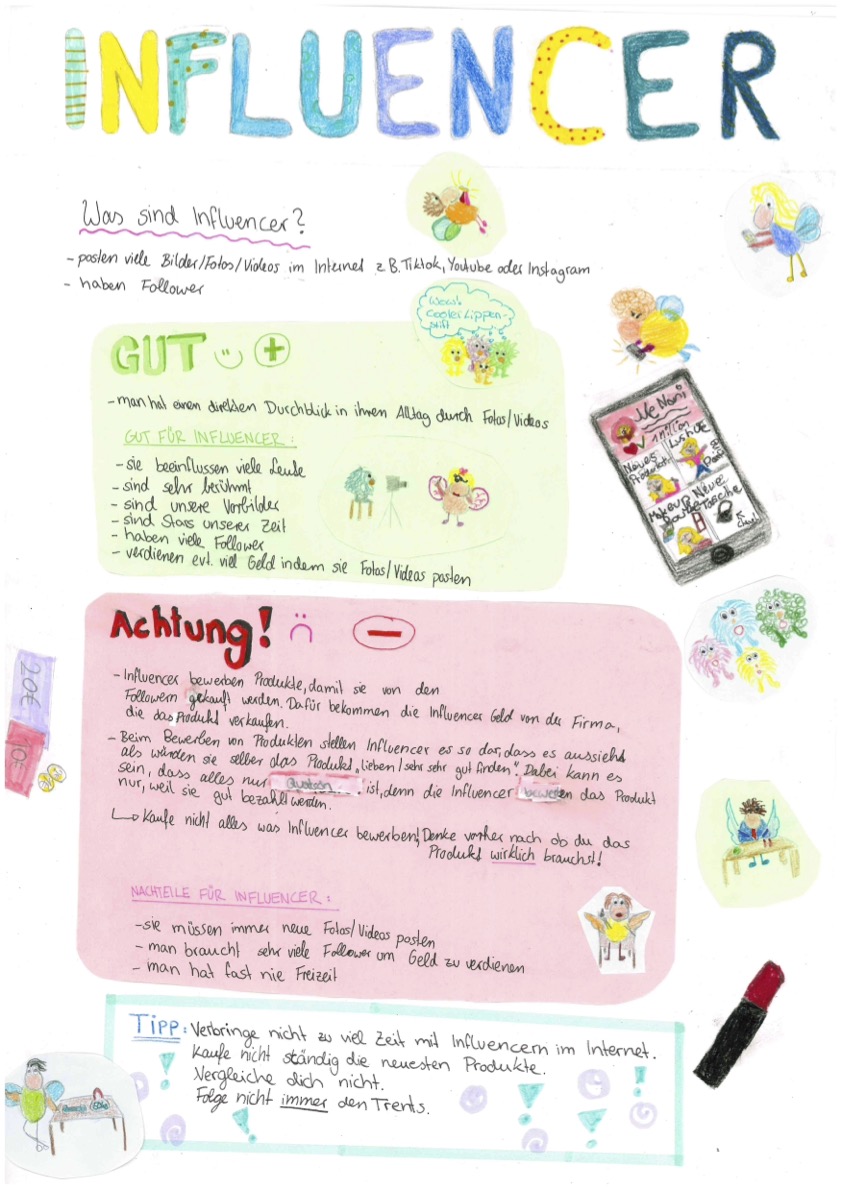 INFLUENCER
Was sind Influencer?
- posten viele Bilder/Fotos/Videos im Internet z.B. Tiktok, Youtube oder Instagram
- haben Follower
Wow!
Cooler Lippen-
stift
GUT +
- man hat einen direkten Durchblick in ihren Alltag durch Fotos/Videos
GUT FÜR INFLUENCER:
- sie beeinflussen viele Leute
- sind sehr berühmt
- sind unsere Vorbilder
- sind Stars unserer Zeit
- haben viele Follower
- verdienen evt. viel Geld indem sie Fotos/Videos posten
1 Million
Neues
Make up
Neue
Tasche
Achtung! -
- Influencer bewerben Produkte, damit sie von den
Followern gekauft werden. Dafür bekommen die Influencer Geld von der Firma,
die das Produkt verkaufen.
- Beim Bewerben von Produkten stellen Influencer es so dar, dass es aussieht
als würden sie selber das Produkt „lieben/sehr sehr gut finden". Dabei kann es
sein, dass alles nur ist, denn die Influencer bewerten das Produkt
nur, weil sie gut bezahlt werden.
↳ Kaufe nicht alles was Influencer bewerben! Denke vorher nach ob du das
Produkt wirklich brauchst!
20€
10
NACHTEILE FÜR INFLUENCER:
- sie müssen immer neue Fotos/Videos posten
- man braucht sehr viele Follower um Geld zu verdienen
- man hat fast nie Freizeit
TIPP: Verbringe nicht zu viel Zeit mit Influencern im Internet.
Kaufe nicht ständig die neuesten Produkte.
Vergleiche dich nicht.
Folge nicht immer den Trents.